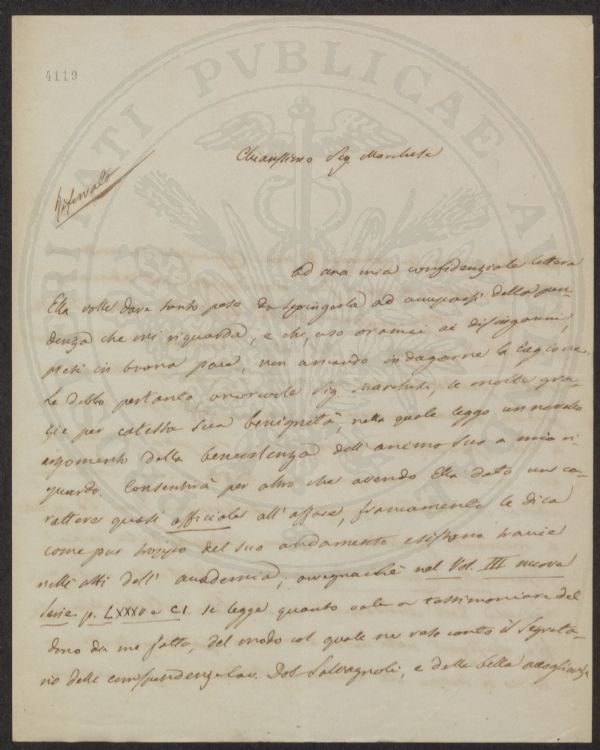 4119
Chiarissimo Sig Marchese
Riservato
Ad una mia confidenziale lettera
Ella volle dare tanto peso da spingerla ad occuparsi della pen-
denza che mi riguarda, e che, uso oramai ai disinganni,
posi in buona pace, non amando indagarne la cagione.
Le debbo pertanto onorevole Sig Marchese, le molte gra-
zie per cotesta Sua benignità, nella quale leggo un novello
argomento della benevolenza dell'animo Suo a mio ri-
guardo. Consentirà per altro che avendo Ella dato un ca-
rattere quasi officiale all'affare, francamente le dica
come pur troppo del suo andamento esistono traccie
nelli atti dell'accademia; avvegnachè nel Vol. III nuova
Serie p. LXXXV e CI. si legge quanto vale a testimoniare del
dono da me fatto, del modo col quale ne rese conto il Segreta-
rio delle corrispondenze Cav. Dot Salvagnoli, e della bella accoglienza
PATI PVBLICAE